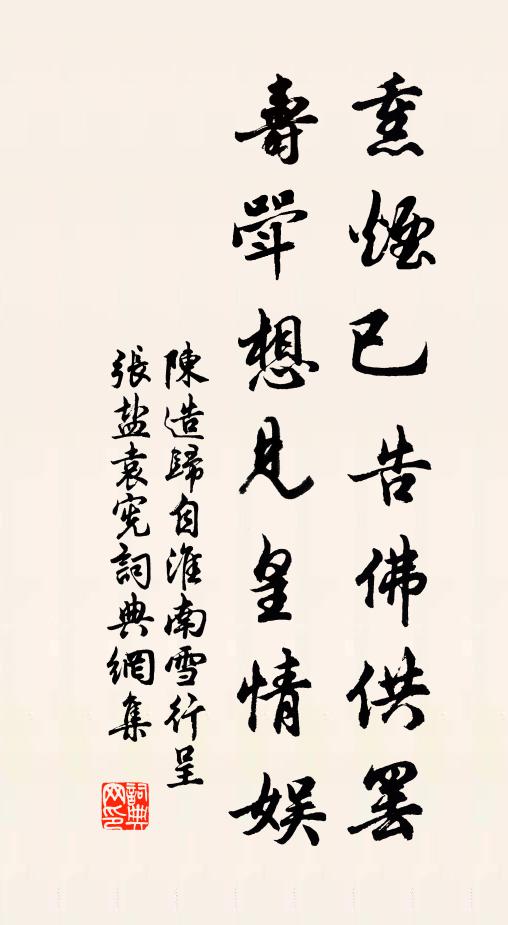 熏煙已告佛供罷
壽斝想見皇情娱
陳造歸自淮南雪行呈
張盐袁宪詞典網集
詞典网印